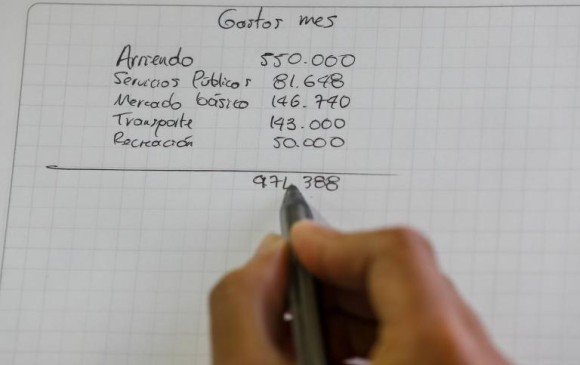 Gastos mes
Arriendo 550.000
Servicios Públicos 81.648
Mercado básico 146.740
Transporte 143.000
Recreación 50.000
971.388